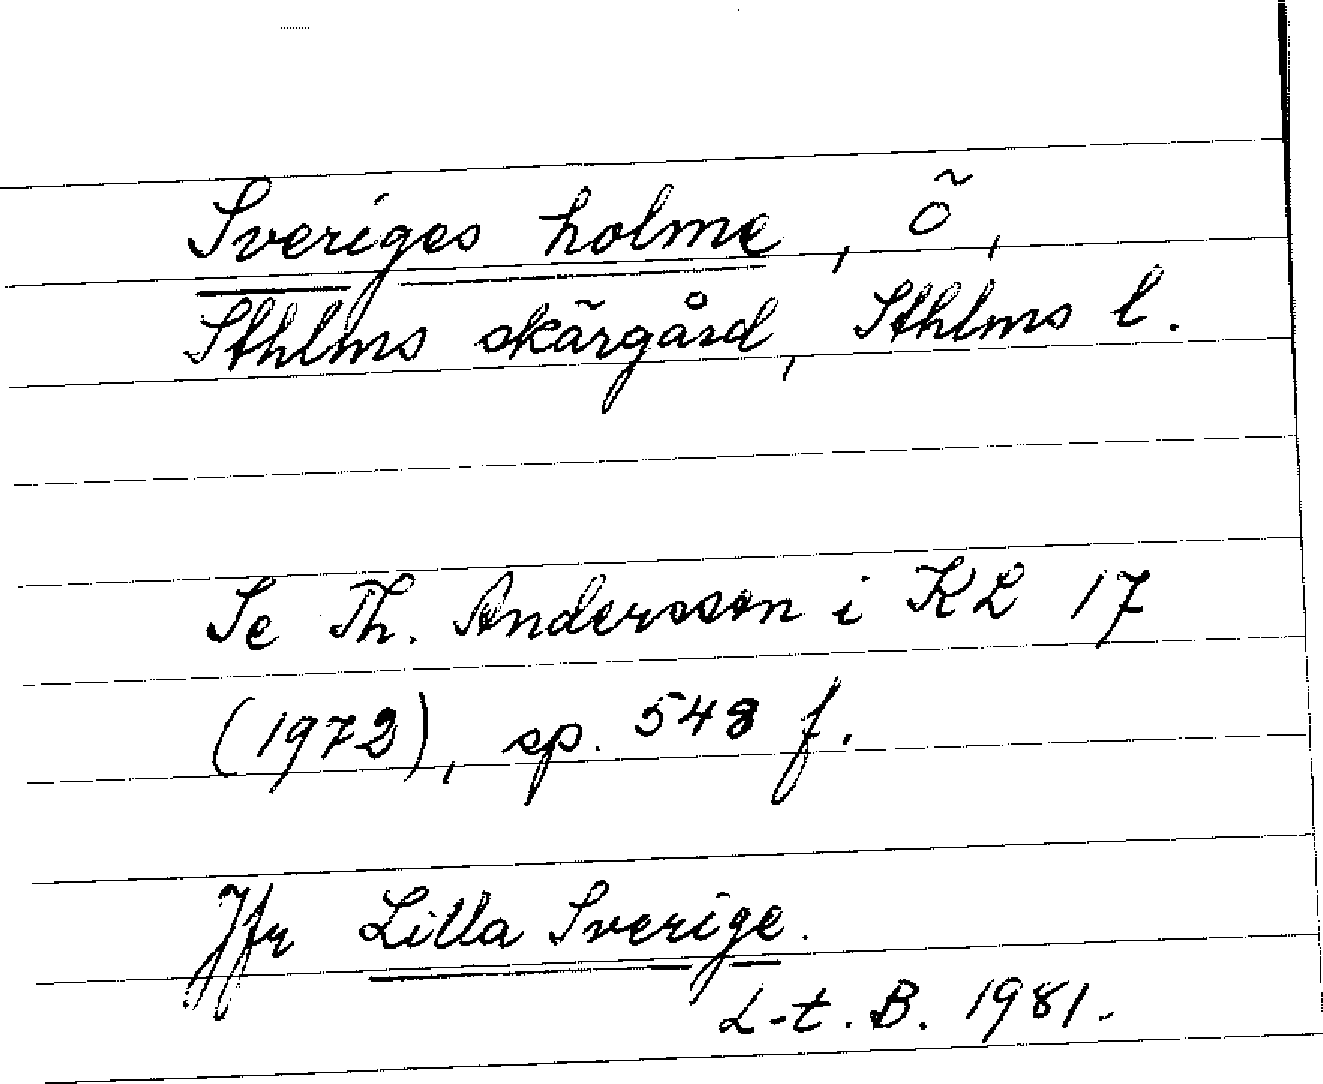 Sveriges holme, ö,
Sthlms skärgård, Sthlms l.
Se Th. Andersson i KL 17
(1972), sp. 548 f.
Jfr Lilla Sverige.
L-t. B. 1981.